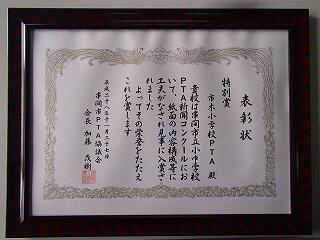 表彰状
特別賞
市木小学校PTA 殿
貴校は串間市立小中学校
PTA新聞コンクールにお
いて、紙面の内容構成等に
工夫がなされ見事に入賞さ
れました
よってその栄誉をたたえ
これを賞します
平成二十八年十一月二十七日
串間市PTA協議会
会長 加藤 茂樹